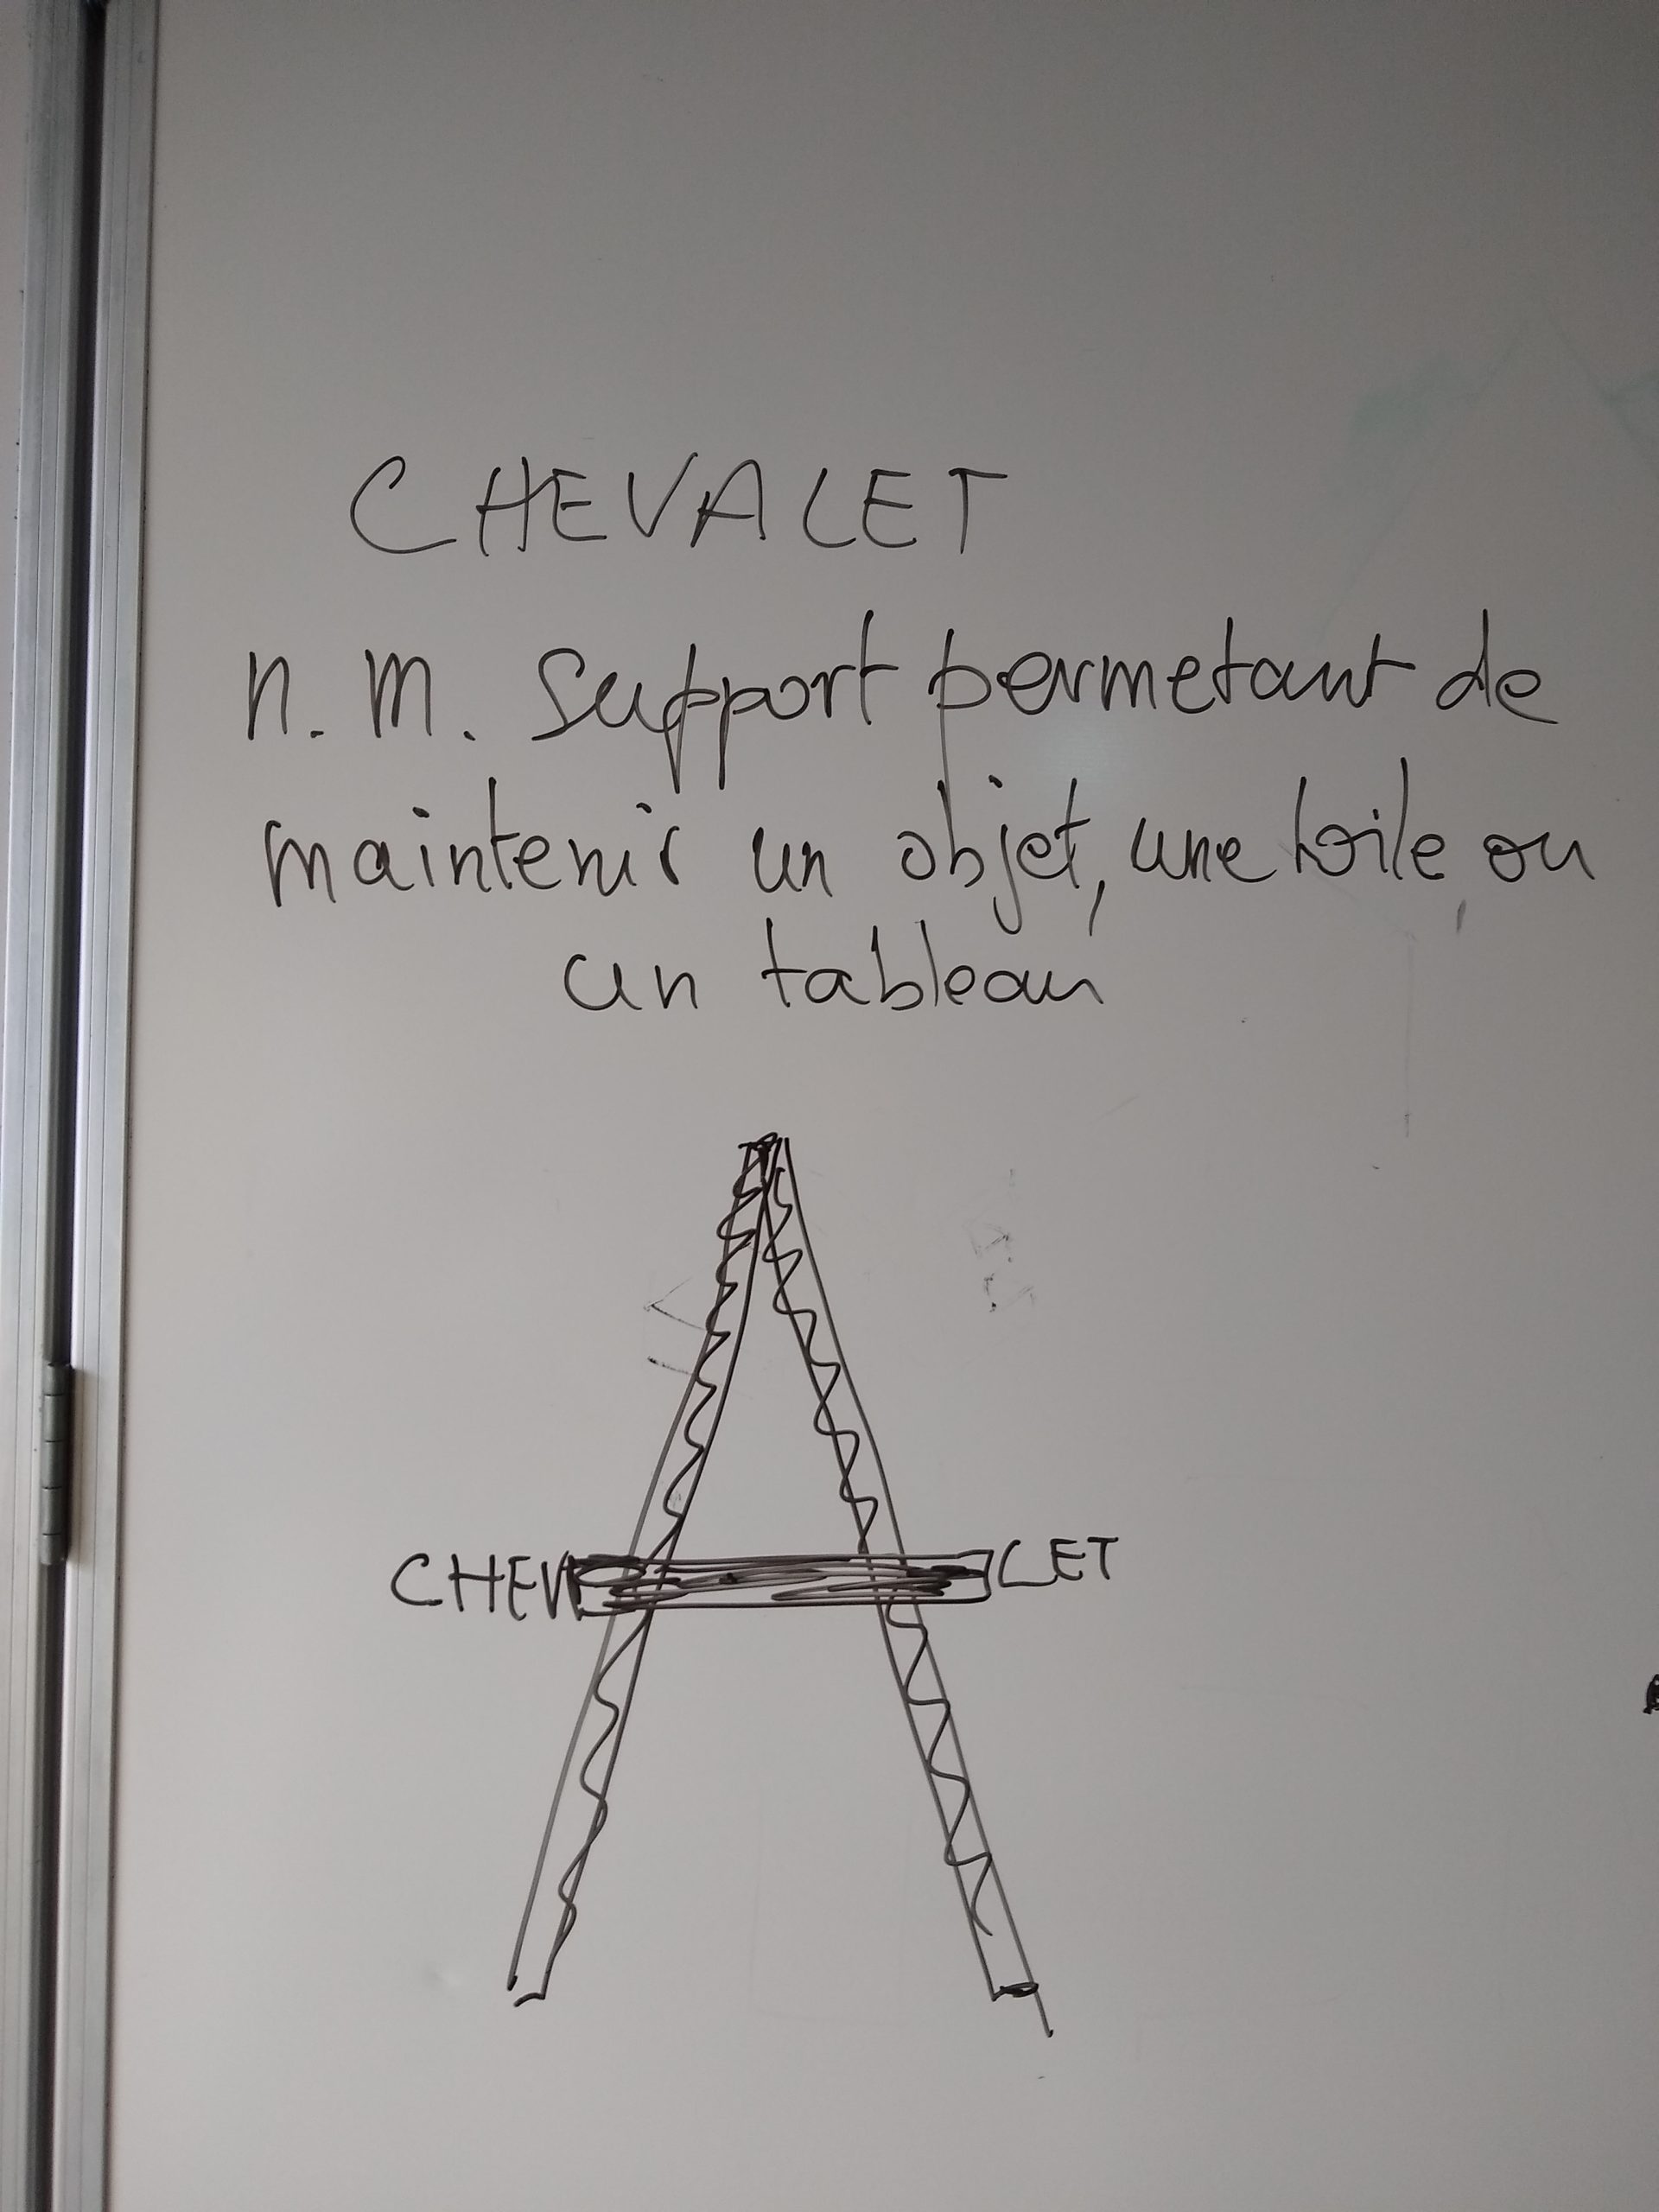 CHEVALET
n.m. support permetant de
maintenir un objet, une toile ou
un tableau
CHEV LET